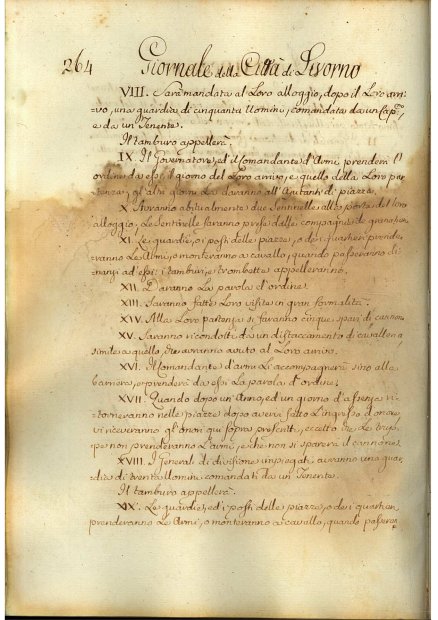 264 Giornale della Città di Livorno
VIII. Sarà mandata al Loro alloggio, dopo il Loro arri=
vo, una guardia di cinquanta Uomini, comandata da un Cap.no
e da un Tenente.
Il tamburo appellerà.
IX. Il Governatore, ed il Comandante d'Armi prenderà l'
ordine da essi, il giorno del Loro arrivo, e quello della Loro par
tenza, gl'altri giorni La daranno all'Aiutanti di piazza.
X. Avranno abitualmente due Sentinelle alla porta del Loro
alloggio, Le Sentinelle saranno prese dalle compagnie de granatieri
XI. Le guardie, o i posti delle piazze, o dei quartieri prende
ranno Le Armi, o monteranno a cavallo, quando passeranno di=
nanzi ad essi: i tamburi, e trombette appelleranno.
XII. Daranno La parola d'ordine.
XIII. Saranno fatte Loro visite in gran formalità.
XIV. Alla Loro partenza si faranno cinque spari di cannone
XV. Saranno ricondotti da un distaccamento di cavalleria
simile a quello, che avranno avuto al Loro arrivo.
XVI. Il Comandante d'armi Li accompagnerà sino alla
barriera, e prenderà da essi La parola d'ordine.
XVII. Quando dopo un'Anno, ed un giorno d'assenza ri=
torneranno nelle piazze dopo avervi fatto L'ingresso d'onore,
vi riceveranno gl'onori qui sopra prescritti, eccetto che Le trup=
pe non prenderanno L'armi, e che non si sparerà il cannone.
XVIII. I Generali di divisione impiegati avranno una guar=
dia di trenta Uomini comandati da un Tenente.
Il tamburo appellerà.
XIX. Le guardie, ed i posti delle piazze, o dei quartieri
prenderanno Le Armi, o monteranno a cavallo, quando passeran